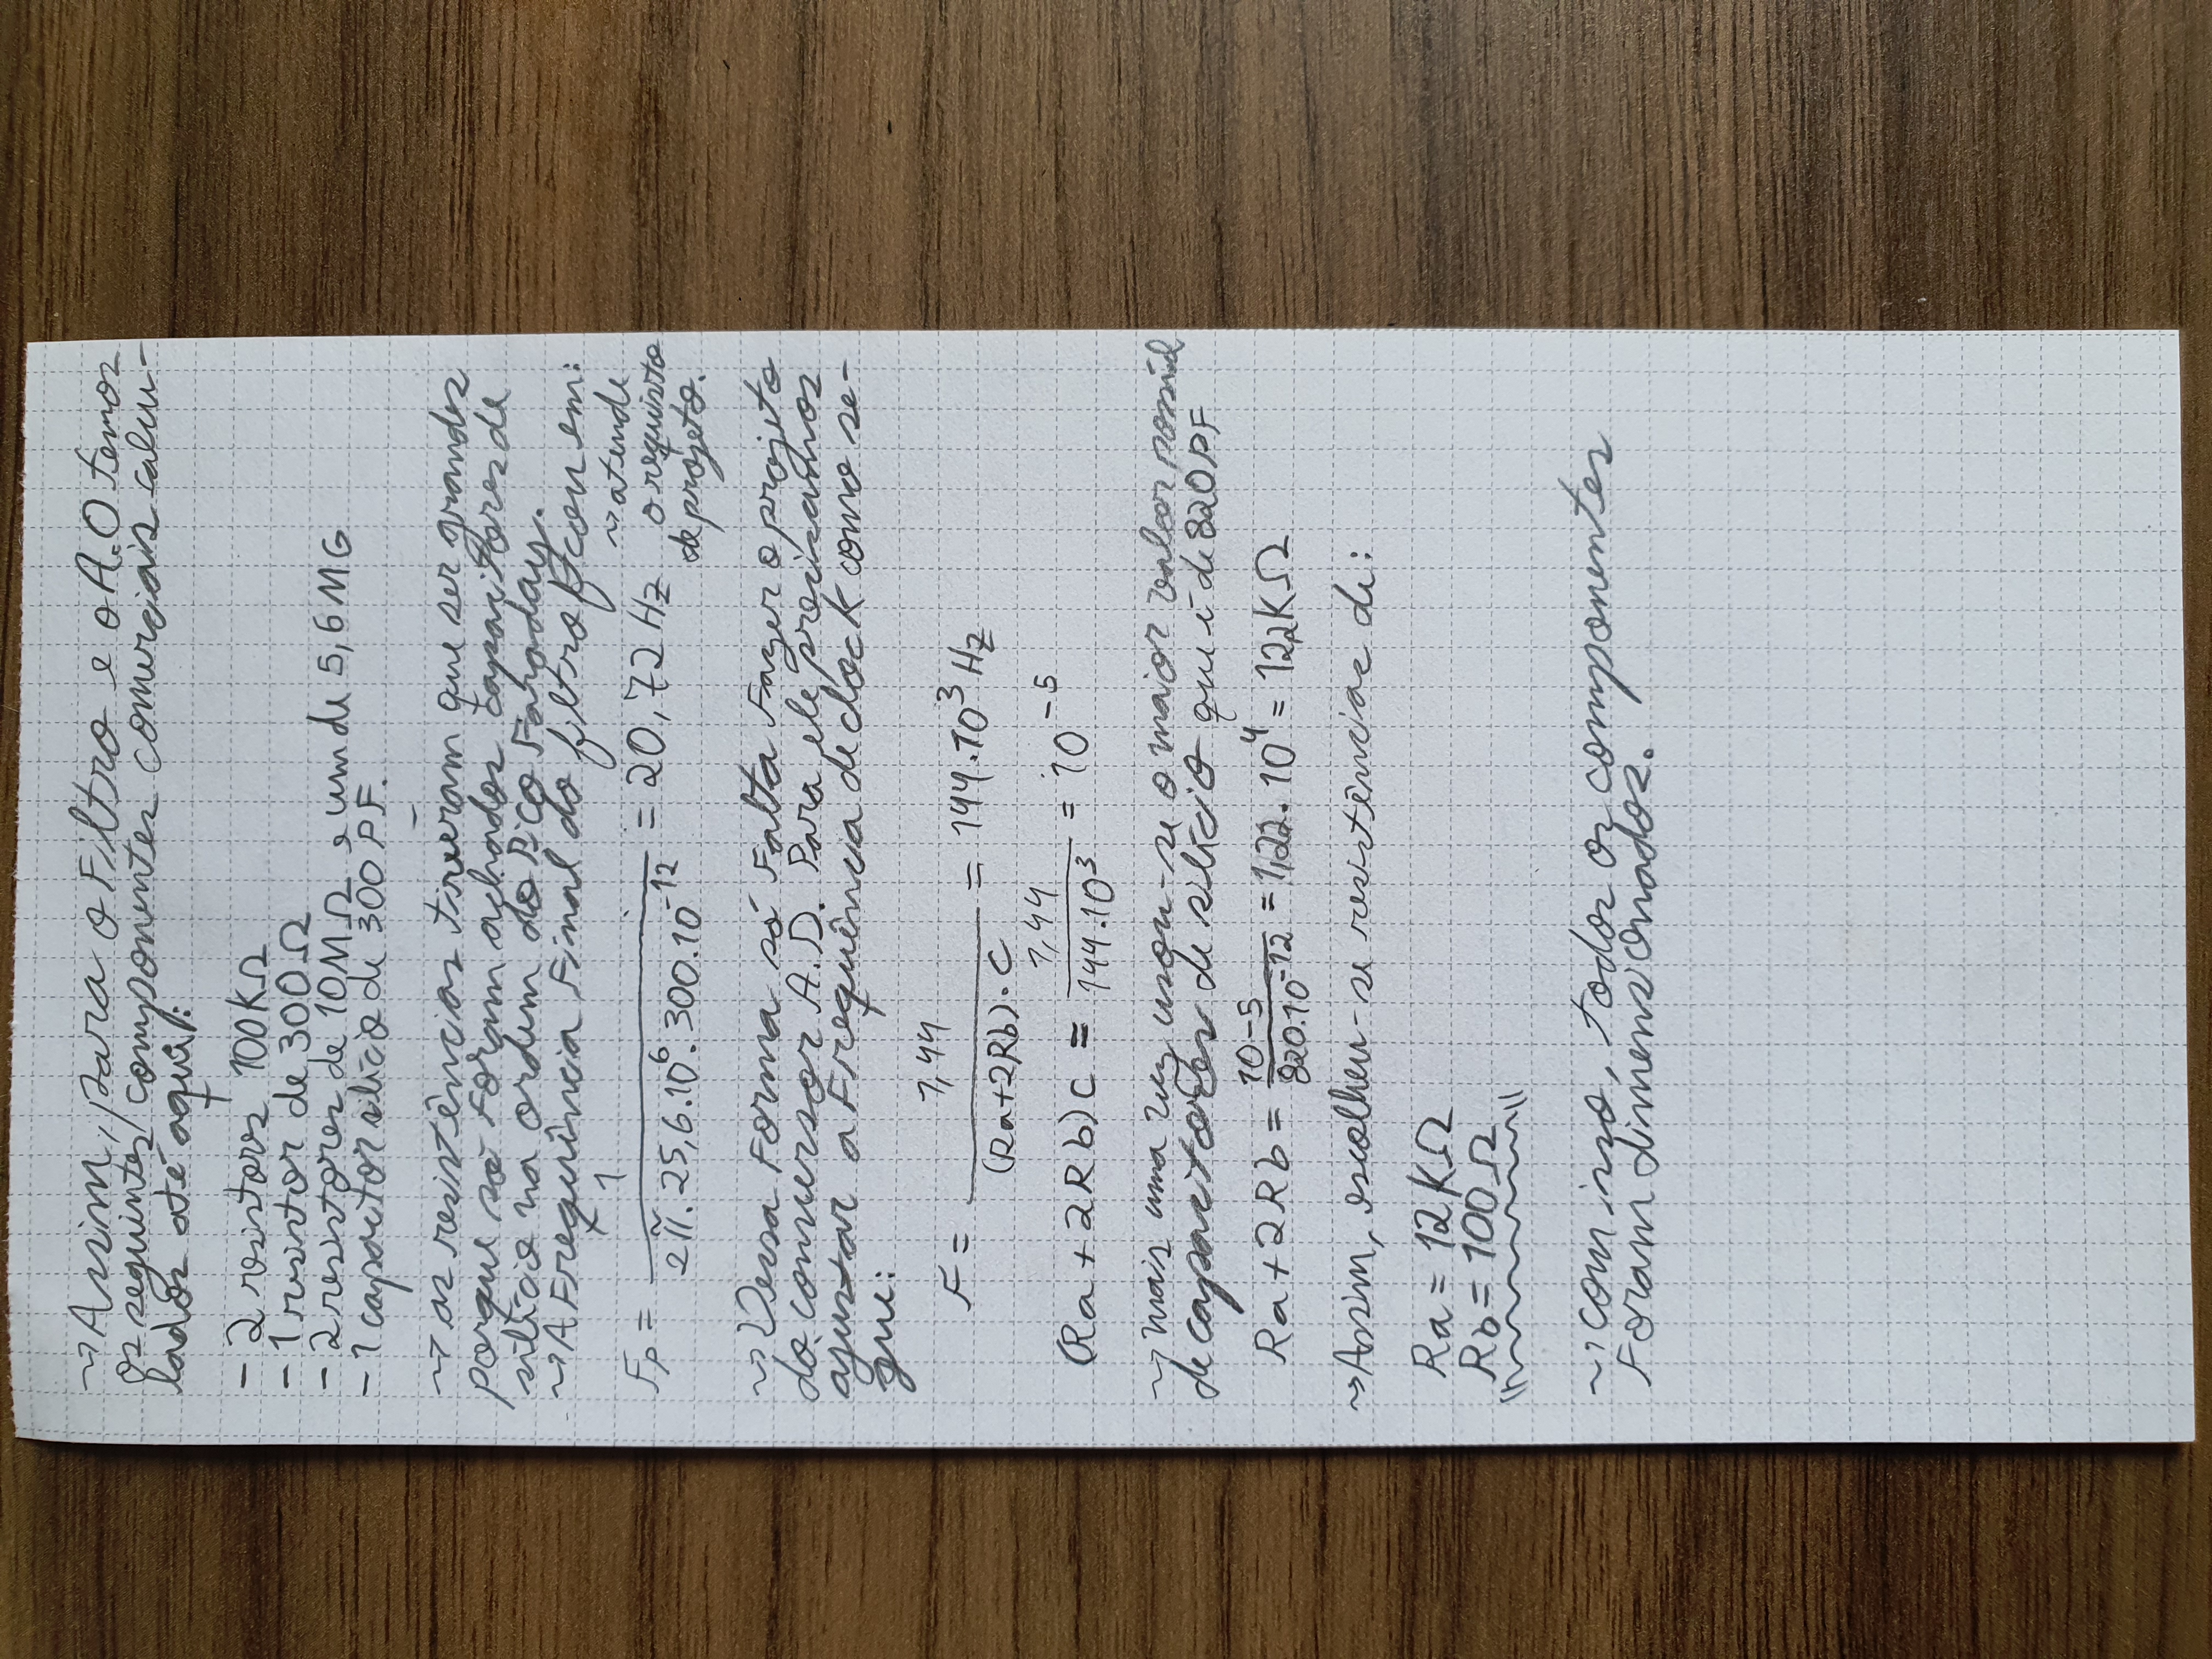 ~> Assim, para o Filtro e o A.O temos
os seguintes componentes comerciais calcu-
lados até aqui:
- 2 resistores 100KΩ
- 1 resistor de 300Ω
- 2 resistores de 10MΩ e um de 5,6MG
- 1 capacitor silício de 300PF.
~> as resistências tiveram que ser grandes
porque só Foram achados capacitores de
silício na ordem do Pico Faraday.
~> A Frequência Final do filtro ficou em:
Fp = 1 / (2π . 25,6.10⁶ . 300.10⁻¹²) = 20,72 Hz ~> atende
o requisito
de projeto.
~> Dessa Forma só Falta Fazer o projeto
do conversor A.D. Para ele precisamos
ajustar a Frequência de clock como se-
gue:
F = 1,44 / ((Ra+2Rb).C) = 144.10³ Hz
(Ra + 2Rb)C = 1,44 / 144.10³ = 10⁻⁵
~> mais uma vez usou-se o maior valor possível
de capacitores de silício que é de 820PF
Ra + 2Rb = 10-5 / 820.10⁻¹² = 1,22.10⁴ = 12,2KΩ
~> Assim, escolheu-se resistências de:
Ra = 12KΩ
Rb = 100Ω
~> com isso, todos os componentes
Foram dimensionados.